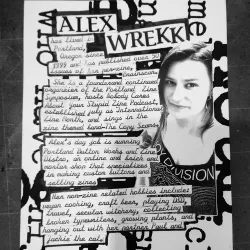 ALEX
WREKK
has lived in
Portland,
Oregon since
1999 and has published over 20
issues of her per-zine, Brainscan.
She is a founder and continual
organizer of the Portland Zine
Symposium, hosts Nobody Cares
About Your Stupid Zine Podcast,
established July as International
Zine Month, and sings in the
zine themed band-The Copy Scams.
Alex's day job is running
Portland Button Works and Zine
Distro, an online and brick and
mortar shop that specializes
in making custom buttons and
selling zines
Her non-zine related hobbies include:
vegan cooking, craft beer, playing D&D,
travel, secular witchery, collecting
broken typewriters, growing plants, and
hanging out with her partner Paul and
Jackie the cat.
DIVISION